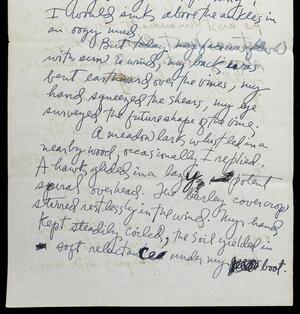 I would sink above the ankles in
an oozy mud.
But today my face was flushed
with sun & wind, my back was
bent eastward over the vines, my
hand squeezed the shears, my eye
surveyed the future shape of the vine.
A meadow lark whistled in a
nearby wood, occasionally I replied.
A hawk glided in a lazy potent
spiral overhead. The barley cover crop
stirred restlessly in the wind. My hand
kept steadily coiled, the soil yielded in
soft reluctance under my boot.